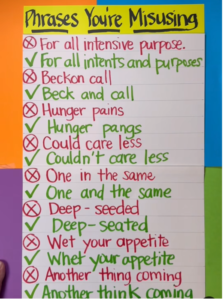 Phrases You're Misusing
For all intensive purpose.
For all intents and purposes
Beckon call
Beck and call
Hunger pains
Hunger pangs
Could care less
Couldn't care less
One in the same
One and the same
Deep-seeded
Deep-seated
Wet your appetite
Whet your appetite
Another thing coming
Another think coming